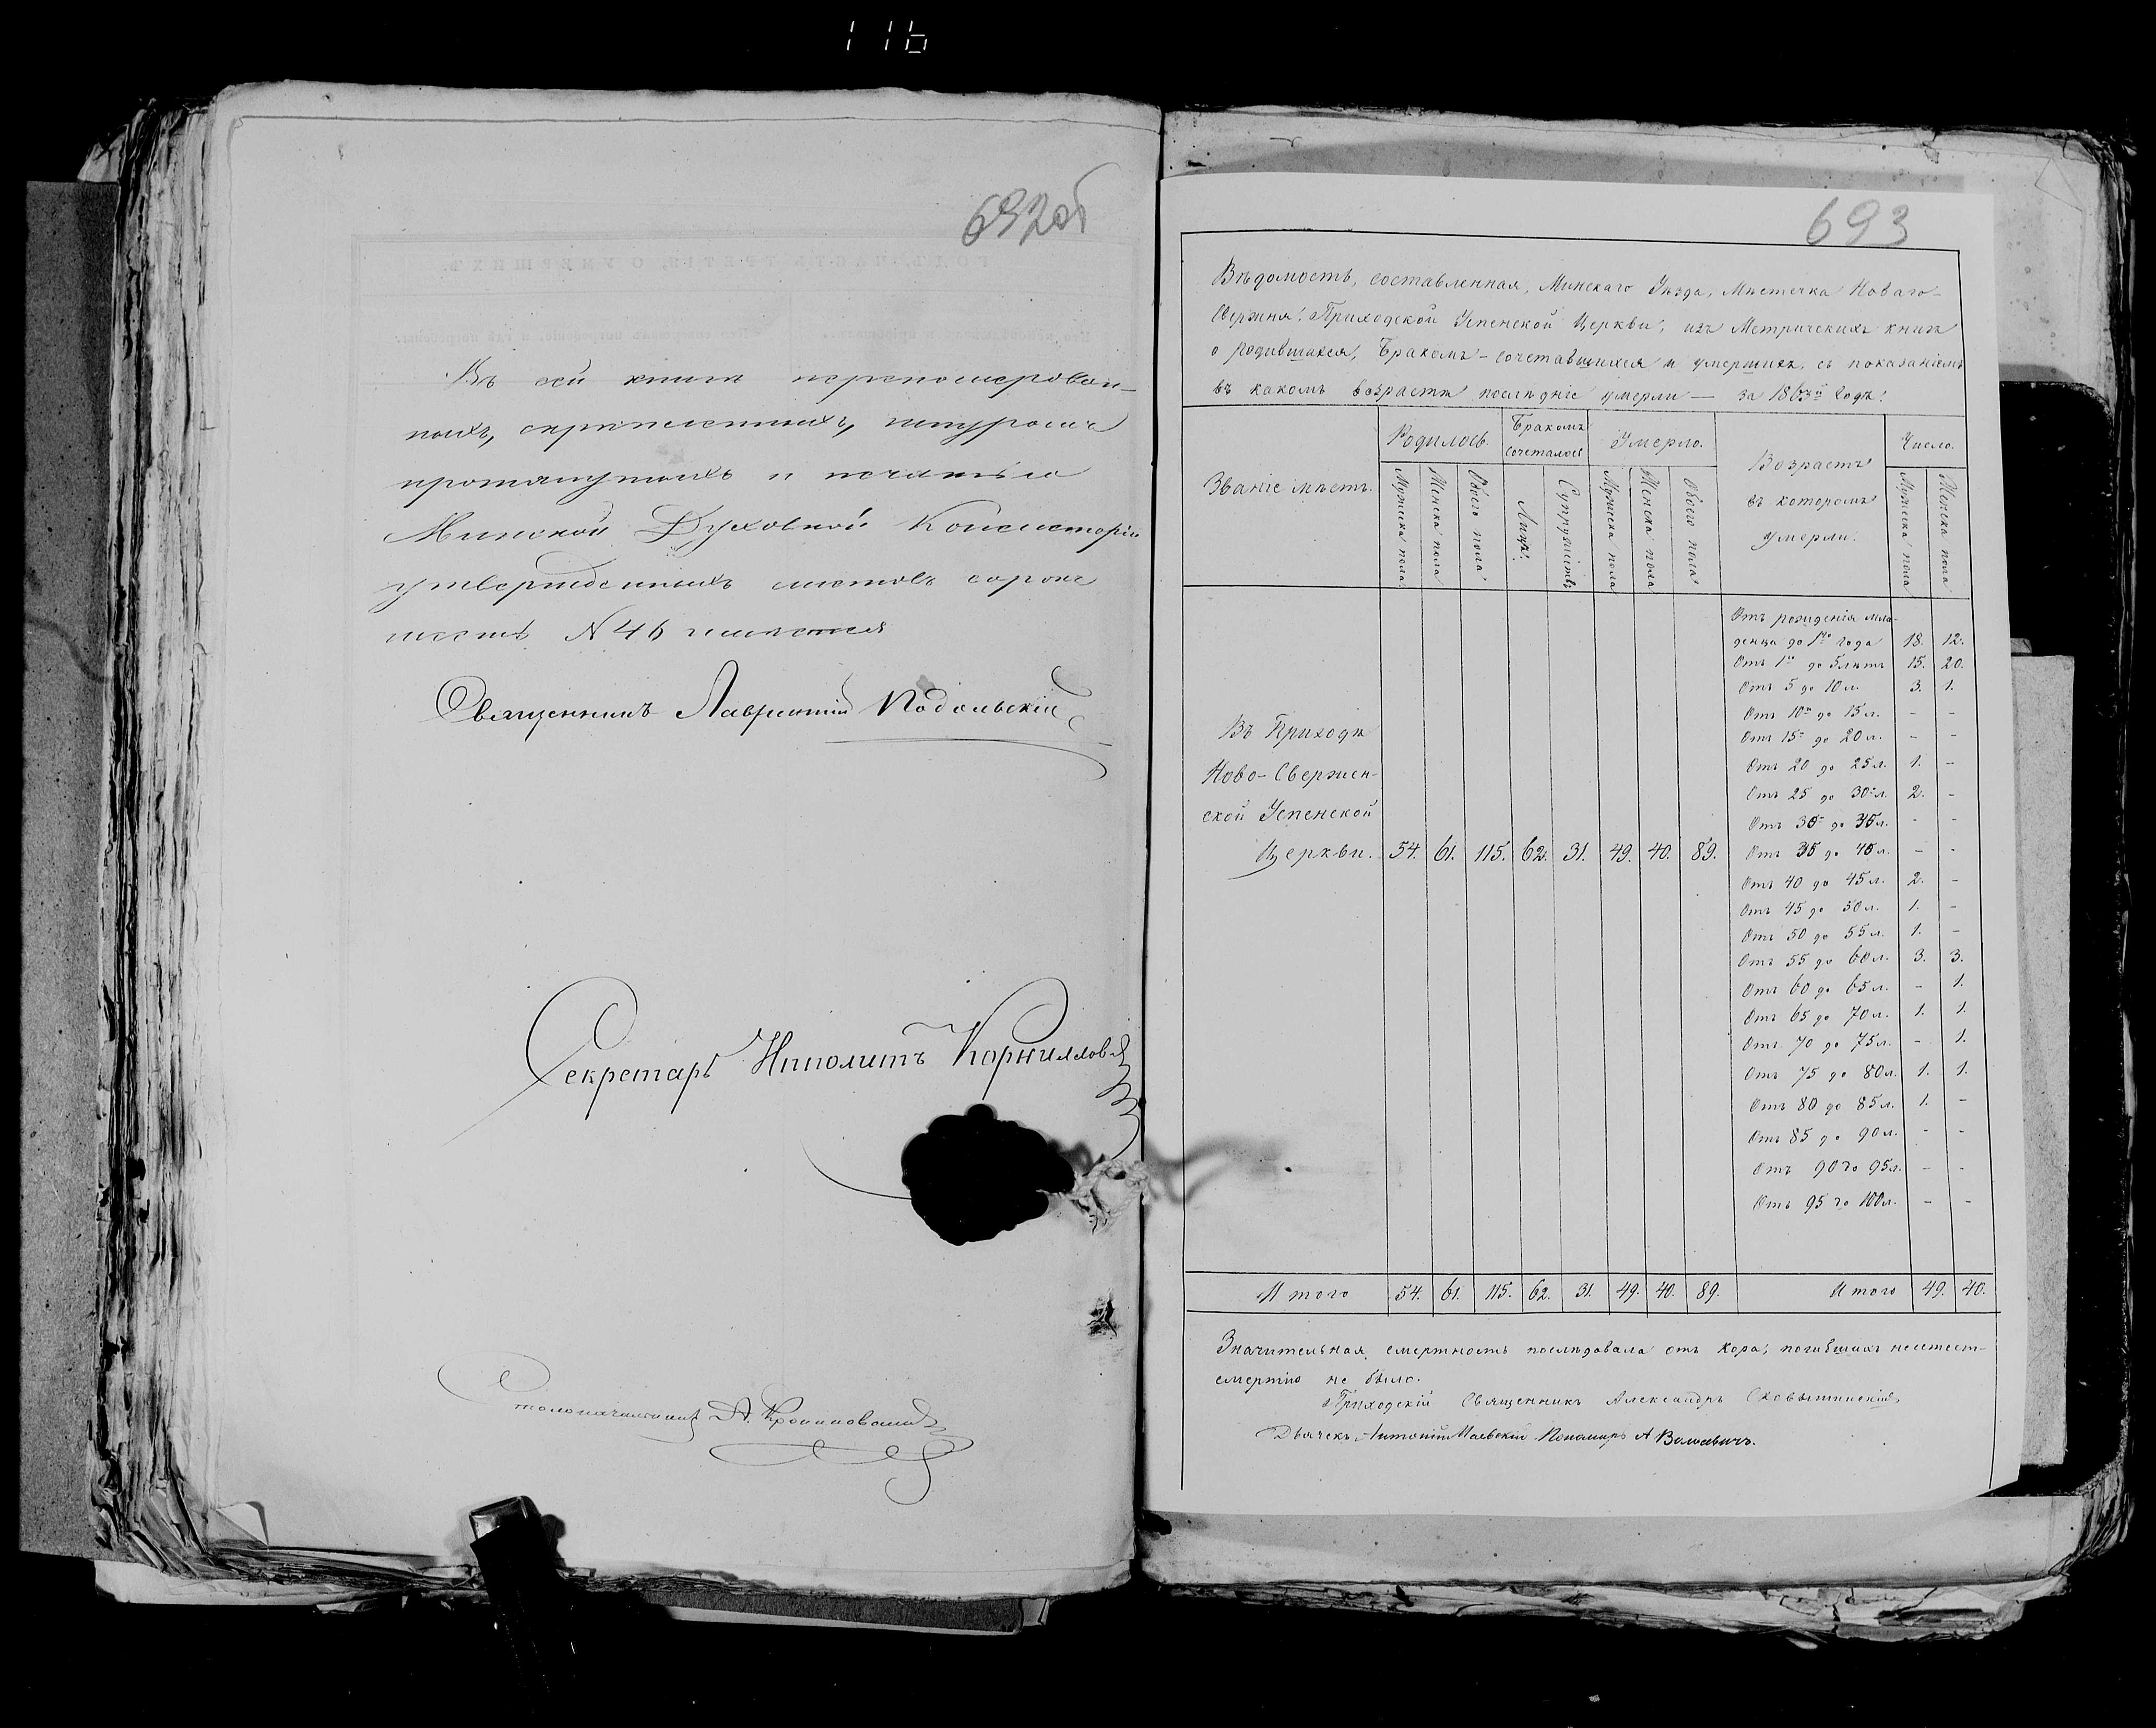 116
692об
Въ сей книгѣ переномерован-
ныхъ, скрѣпленныхъ, шнуромъ
протянутыхъ и печатью
Минской Духовной Консисторіи
утвержденныхъ листовъ сорокъ
шесть N 46 имѣется
Священникъ Лаврентій Подольскій
Секретарь Ипполитъ Корниловъ
Столоначальникъ А.
693
Вѣдомость, составленная, Минскаго Уѣзда, Мѣстечка Новаго-
Свержня! Приходской Успенской Церкви, изъ Метрическихъ книгъ
о родившихся, Бракомъ-сочетавшихся и умершихъ, съ показаніемъ
въ какомъ возрастѣ послѣдніе умерли — за 1863й Годъ.
Званіе мѣстъ. Родилось. Бракомъ сочеталось Умерло. Возрастъ въ которомъ умерли. Число.
Мужеска пола Женска пола Обоего пола Лицъ. Супружествъ Мужеска пола Женска пола Обоего пола Мужеска пола Женска пола
Отъ рожденія мла-
денца до 1го года 18. 12.
Отъ 1го до 5 лѣтъ 15. 20.
Отъ 5 до 10 л. 3. 1.
Отъ 10ти до 15 л. - -
Отъ 15 до 20 л. - -
Отъ 20 до 25 л. 1. -
Отъ 25 до 30 л. 2. -
Отъ 30 до 35 л. - -
Въ Приходѣ
Ново-Свержен-
ской Успенской
Церкви. 54. 61. 115. 62. 31. 49. 40. 89. Отъ 35 до 40 л. - -
Отъ 40 до 45 л. 2. -
Отъ 45 до 50 л. 1. -
Отъ 50 до 55 л. 1. -
Отъ 55 до 60 л. 3. 3.
Отъ 60 до 65 л. - 1.
Отъ 65 до 70 л. 1. 1.
Отъ 70 до 75 л. - 1.
Отъ 75 до 80 л. 1. 1.
Отъ 80 до 85 л. 1. -
Отъ 85 до 90 л. - -
Отъ 90 до 95 л. - -
Отъ 95 до 100 л. - -
Итого 54. 61. 115. 62. 31. 49. 40. 89. Итого 49. 40.
Значительная смертность послѣдовала отъ кора; погибшихъ неестест-
смертію не было.
Приходскій Священникъ Александръ
Дьячекъ Антоній Маевскій Пономарь А